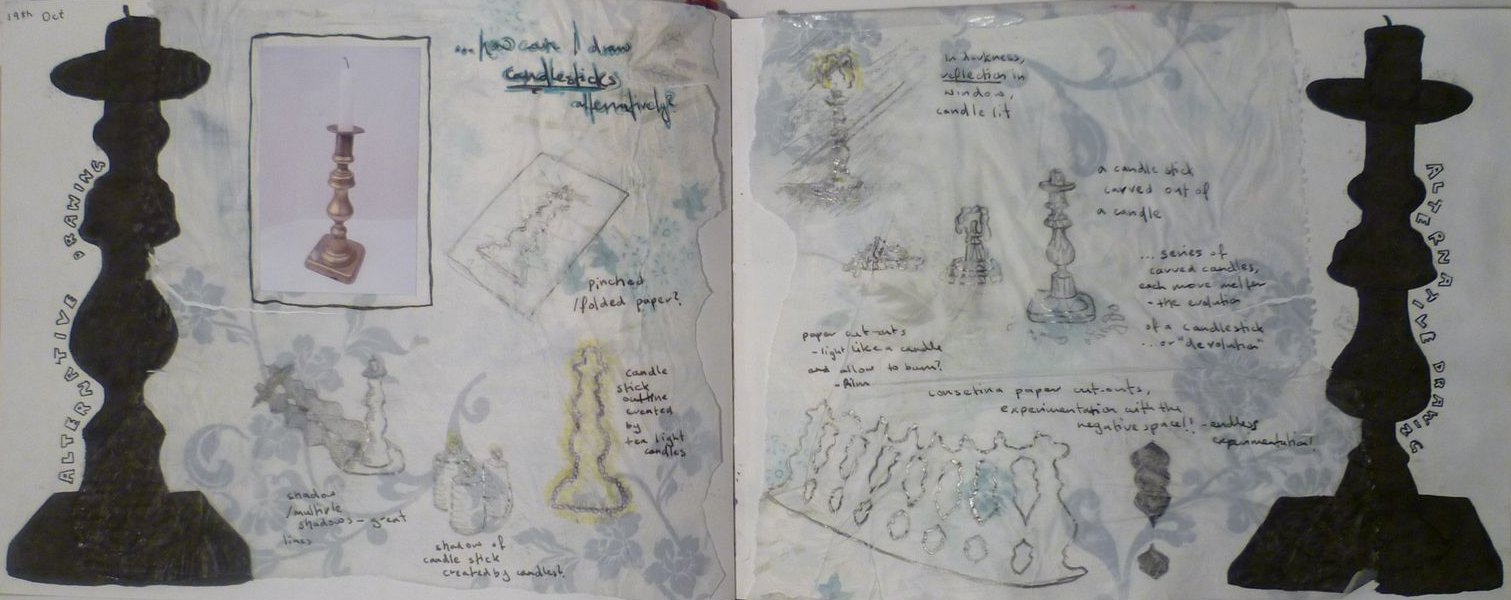 19th Oct
ALTERNATIVE DRAWING
...how can I draw
candlesticks
alternatively?
pinched
/folded paper?
candle
stick
outline
created
by
tea light
candles
shadow
/multiple
shadows - great
lines
shadow of
candle stick
created by candles?
in darkness,
reflection in
window,
candle lit
a candle stick
carved out of
a candle
... series of
carved candles,
each more melted
- the evolution
of a candlestick
... or "devolution"
paper cut-outs
- light like a candle
and allow to burn?
- film
paper cut-outs,
experimentation with the
negative space!! - endless
experimentation!
ALTERNATIVE DRAWING